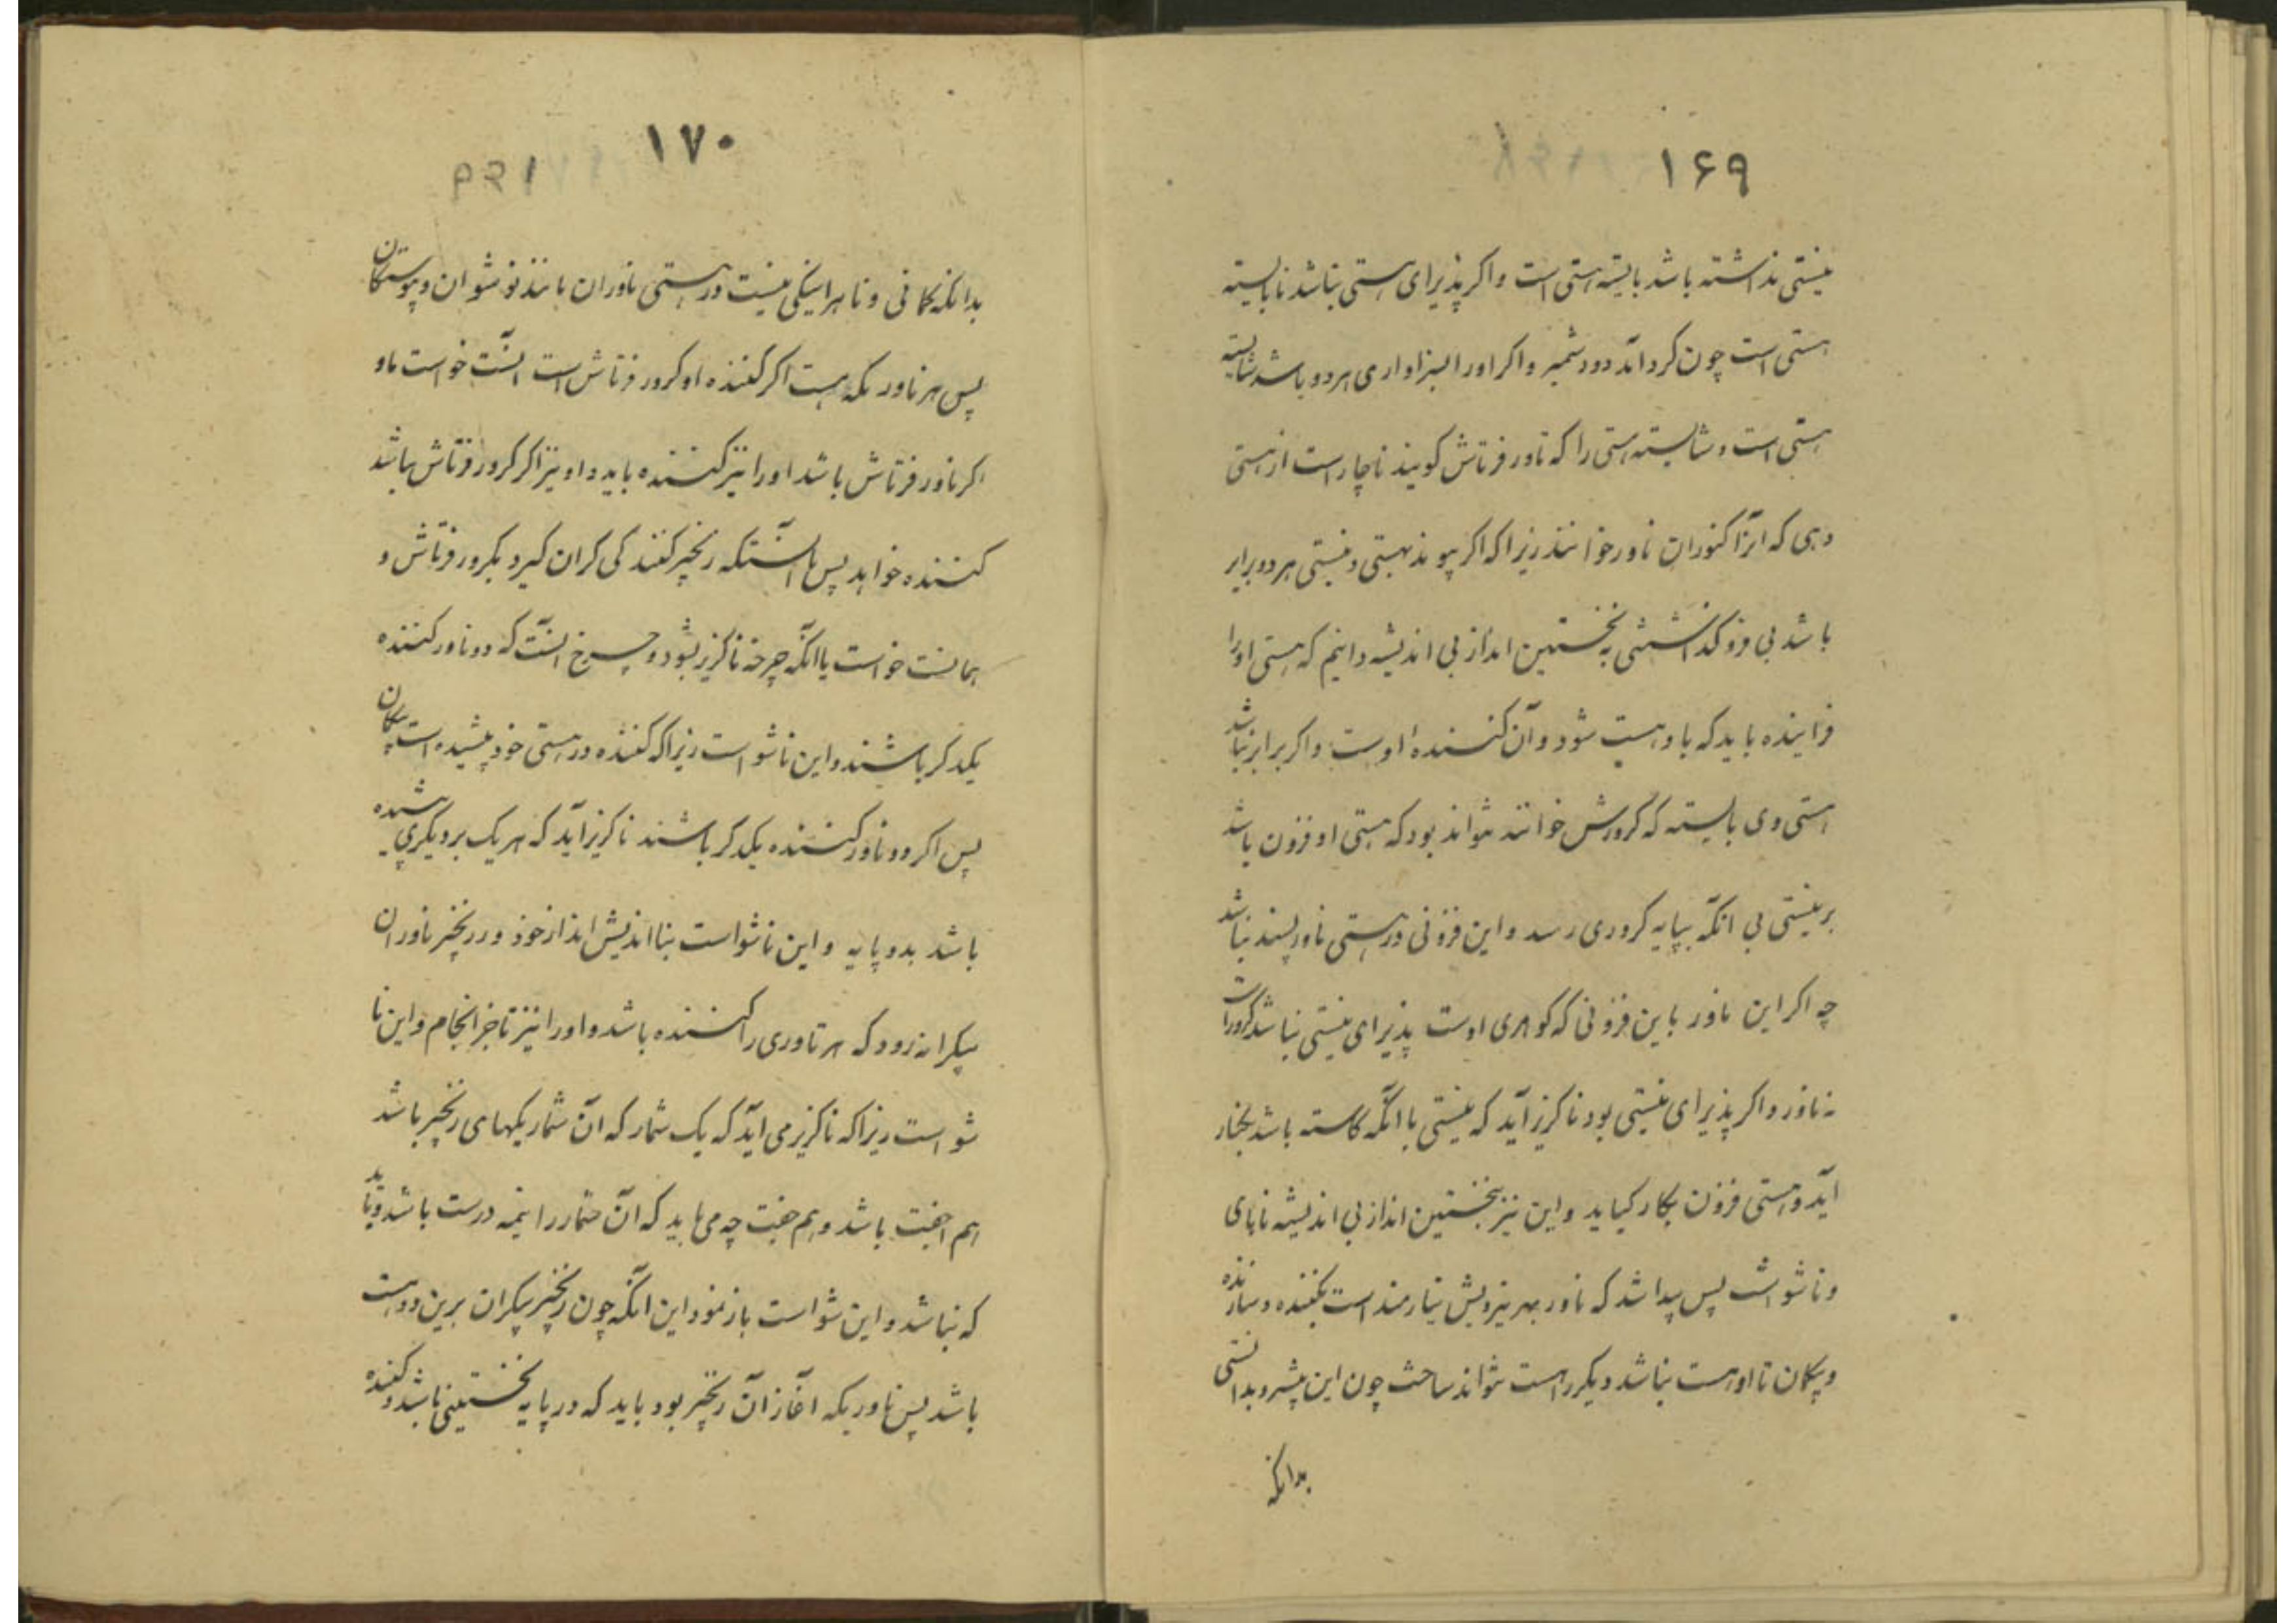 ۱۶۹
نیستی نداشته باشد بایسته هستی است و اکر پذیرای هستی نباشد نابایسته
هستی است چون کرد آید دو دشمیر و اکر اورا سزاواری هر دو باشد شایسته
هستی است و شایسته هستی را که ناور فرتاش کویند ناچار است از هستی
دهی که آنرا کنوران ناور خوانند زیرا که اکر پیوند هستی و نیستی هر دو برابر
باشد بی فزو کذاشتنی به نخستین انداز بی اندیشه دانیم که هستی اورا
فزاینده باید که باو هست شود و آن کننده اوست و اکر برابر نباشد
هستی وی بایسته که کرورش خوانند تواند بود که هستی او فزون باشد
بر نیستی بی آنکه بپایه کروری رسد و این فزونی در هستی ناور پسند نباشد
چه اکر این ناور باین فزونی که کوهری اوست پذیرای نیستی نباشد کرور است
نه ناور و اکر پذیرای نیستی بود ناکزیر آید که نیستی با آنکه کاسته باشد بکنار
آید و هستی فزون بکار نیاید و این نیز بنخستین انداز بی اندیشه ناپای
و ناشو است پس پیدا شد که ناور بهر نیرویش نیازمند است بکننده و سازنده
و پیکان تا او هست نباشد دیکر را هست نتواند ساخت چون این پیشرو بدانستی
بدانکه
۱۷۰
۱۶۹
بدانکه کمانی و ناهراینکی نیست در هستی ناوران مانند نوشوان و پیوستکان
پس هر ناور یکه هست اکر کننده او کرور فرتاش است آنست خواست ما و
اکر ناور فرتاش باشد اورا نیز کننده باید و او نیز اکر کرور فرتاش باشد
کننده خواهد پس یا آنستکه زنجیر کنندکی کران کیرد بکرور فرتاش و
همانست خواست یا آنکه چرخه ناکزیر بشود و چرخ آنست که دو ناور کننده
یکدکر باشند و این ناشو است زیرا که کننده در هستی خود پیشیده است بیکان
پس اکر دو ناور کننده یکدکر باشند ناکزیر آید که هر یک بر دیکری پیشیده
باشد بدو پایه و این ناشواست بنا اندیش انداز خود ور زنجیر ناوران
بیکرانه رود که هر ناوری را کننده باشد و اورا نیز تا جز انجام و این نا
شو است زیرا که ناکزیر می آید که یک شمار که آن شمار یکهای زنجیر باشد
هم جفت باشد و هم جفت چه می باید که آن شمار را نیمه درست باشد و باید
که نباشد و این شو است باز نمود این آنکه چون زنجیر بیکران برین دو هست
باشد پس ناور یکه آغاز آن زنجیر بود باید که در پایه نخستینی باشد و کننده